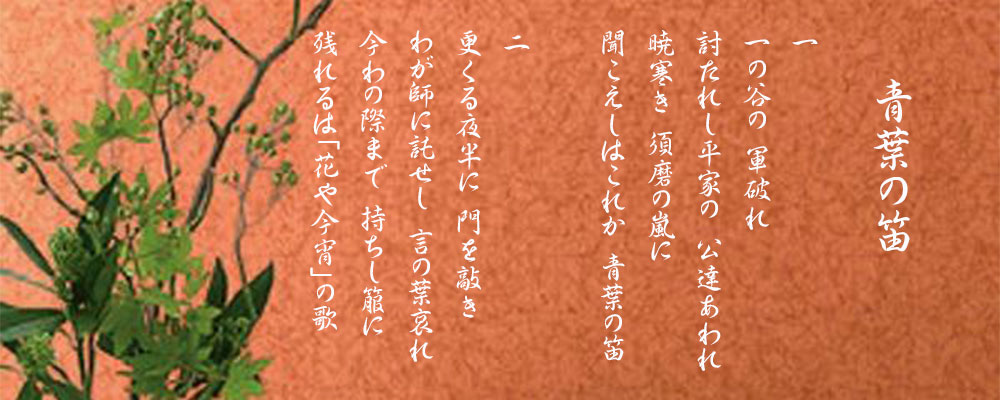 青葉の笛
一
一の谷の 軍破れ
討たれし平家の 公達あわれ
暁寒き 須磨の嵐に
聞こえしはこれか 青葉の笛
二
更くる夜半に 門を敲き
わが師に託せし 言の葉哀れ
今わの際まで 持ちし箙に
残れるは「花や今宵」の歌